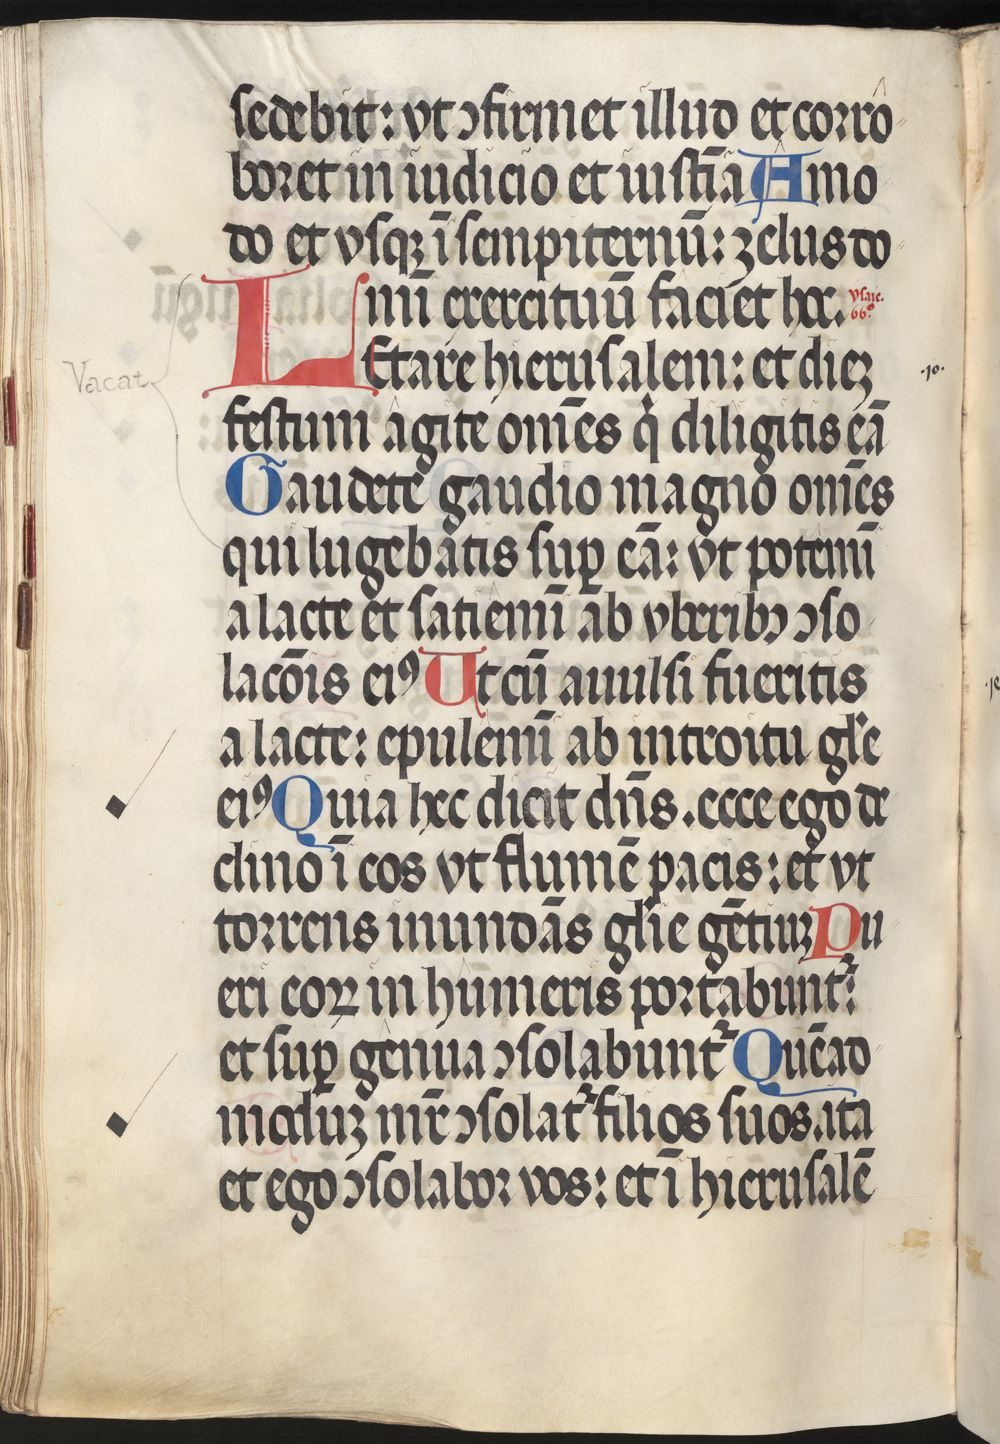 sedebit: vt ↄfirmet illud et corro
boret in iudicio et iustīa Amo
do et vsqꝫ ī sempiternū: zelus do
mīī exercituū faciet hec. ysaie. 66º
Letare hierusalem: et dieꝫ .10.
Vacat
festum agite om̄es q̇ diligitis eā
Gaudete gaudio magno om̄es
qui lugebatis suꝑ eā: vt potemī
a lacte et satiemī ab vberibꝰ ↄso
lacōis eiꝰ Ut cū auulsi fueritis
a lacte: epulemī ab introitu gl̄e
eiꝰ Quia hec dicit dn̄s. ecce ego de
clino ī eos vt flumē pacis: et vt
torrens inundās gl̄ie gētiuꝫ Pu
eri eoꝝ in humeris portabunt᷑:
et suꝑ genua ↄsolabunt᷑ Quēad
moduꝫ mr̄ ↄsolat᷑ filios suos. ita
et ego ↄsolabor vos: et ī hierusalē